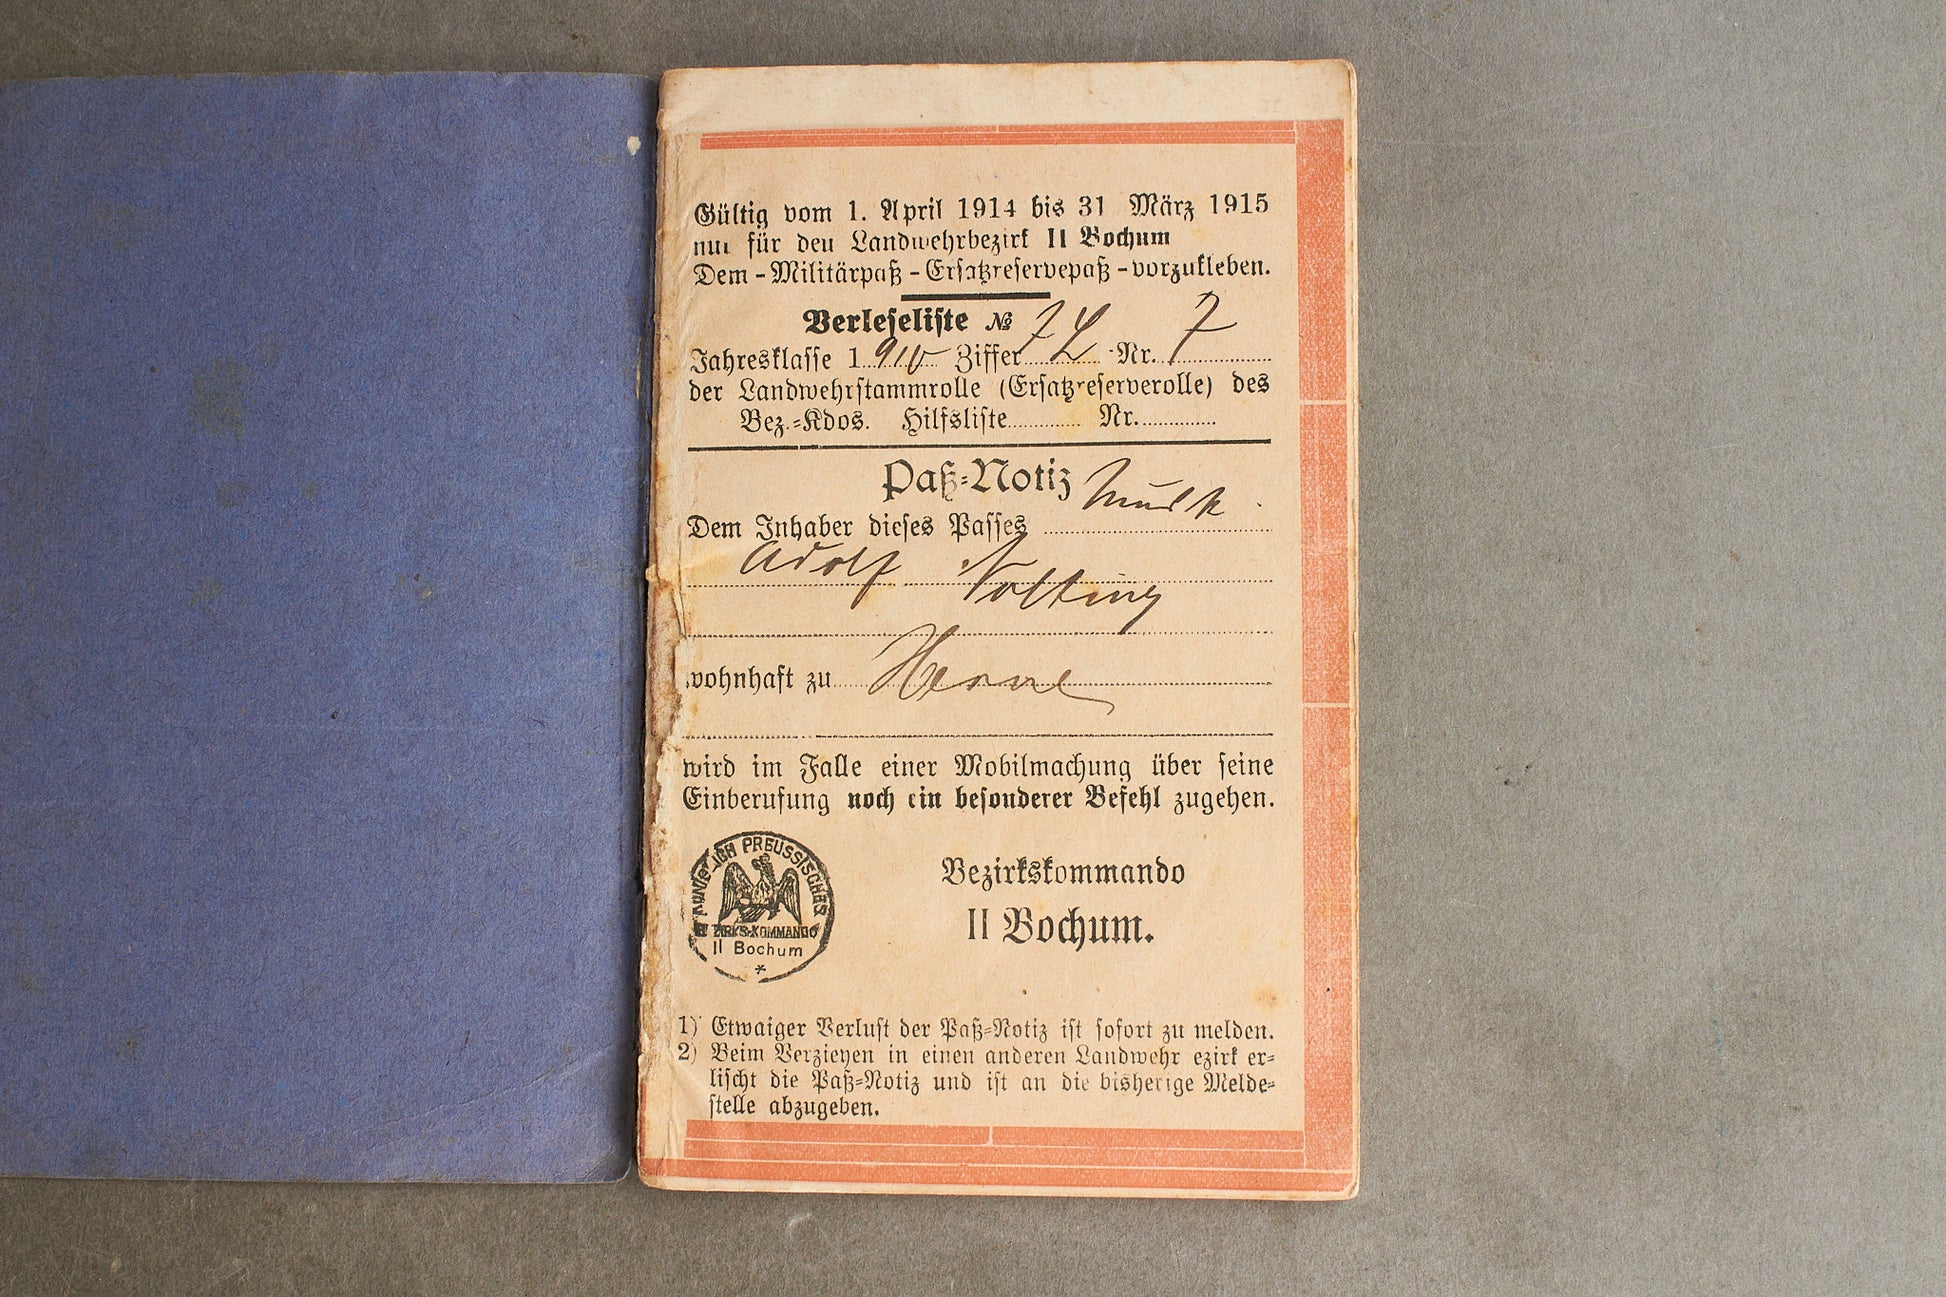 Gültig vom 1. April 1914 bis 31 März 1915
nur für den Landwehrbezirk II Bochum
Dem - Militärpaß - Ersatzreservepaß - vorzukleben.
Verleseliste №
Jahresklasse 1910 Ziffer Nr. 7
der Landwehrstammrolle (Ersatzreserverolle) des
Bez.=Kdos. Hilfsliste Nr.
Paß=Notiz
Dem Inhaber dieses Passes
Adolf Nolting
wohnhaft zu Herne
wird im Falle einer Mobilmachung über seine
Einberufung noch ein besonderer Befehl zugehen.
KÖNIGLICH PREUSSISCHES
BEZIRKS-KOMMANDO
II Bochum
*
Bezirkskommando
II Bochum.
1) Etwaiger Verlust der Paß=Notiz ist sofort zu melden.
2) Beim Verziehen in einen anderen Landwehr ezirk er=
lischt die Paß=Notiz und ist an die bisherige Melde=
stelle abzugeben.